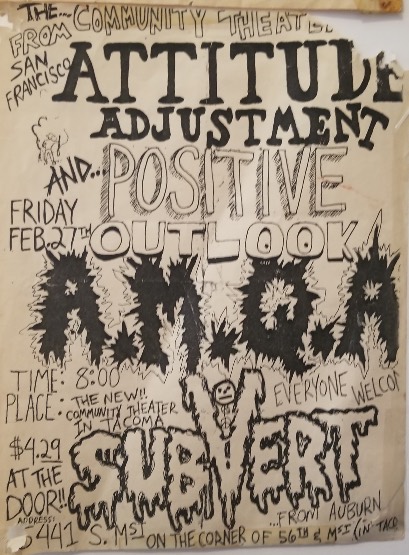 THE... COMMUNITY THEATE
FROM
SAN
FRANCISCO
ATTITUDE
ADJUSTMENT
AND...
POSITIVE
OUTLOOK!
FRIDAY
FEB. 27TH
A.M.Q.A
TIME: 8:00
PLACE: THE NEW!!
COMMUNITY THEATER
IN TACOMA
EVERYONE WELCO
SUBVERT
...FROM AUBURN
$4.29
AT THE
DOOR!!
ADDRESS:
5441 S. M ST ON THE CORNER OF 56TH & M ST (IN TACO